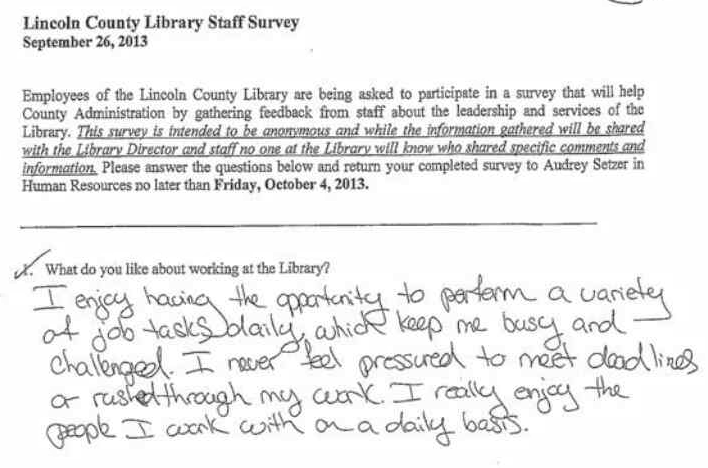 Lincoln County Library Staff Survey
September 26, 2013
Employees of the Lincoln County Library are being asked to participate in a survey that will help
County Administration by gathering feedback from staff about the leadership and services of the
Library. This survey is intended to be anonymous and while the information gathered will be shared
with the Library Director and staff no one at the Library will know who shared specific comments and
information. Please answer the questions below and return your completed survey to Audrey Setzer in
Human Resources no later than Friday, October 4, 2013.
1. What do you like about working at the Library?
I enjoy having the opportunity to perform a variety
of job tasks daily, which keep me busy and
challenged. I never feel pressured to meet deadlines
or rushed through my work. I really enjoy the
people I work with on a daily basis.